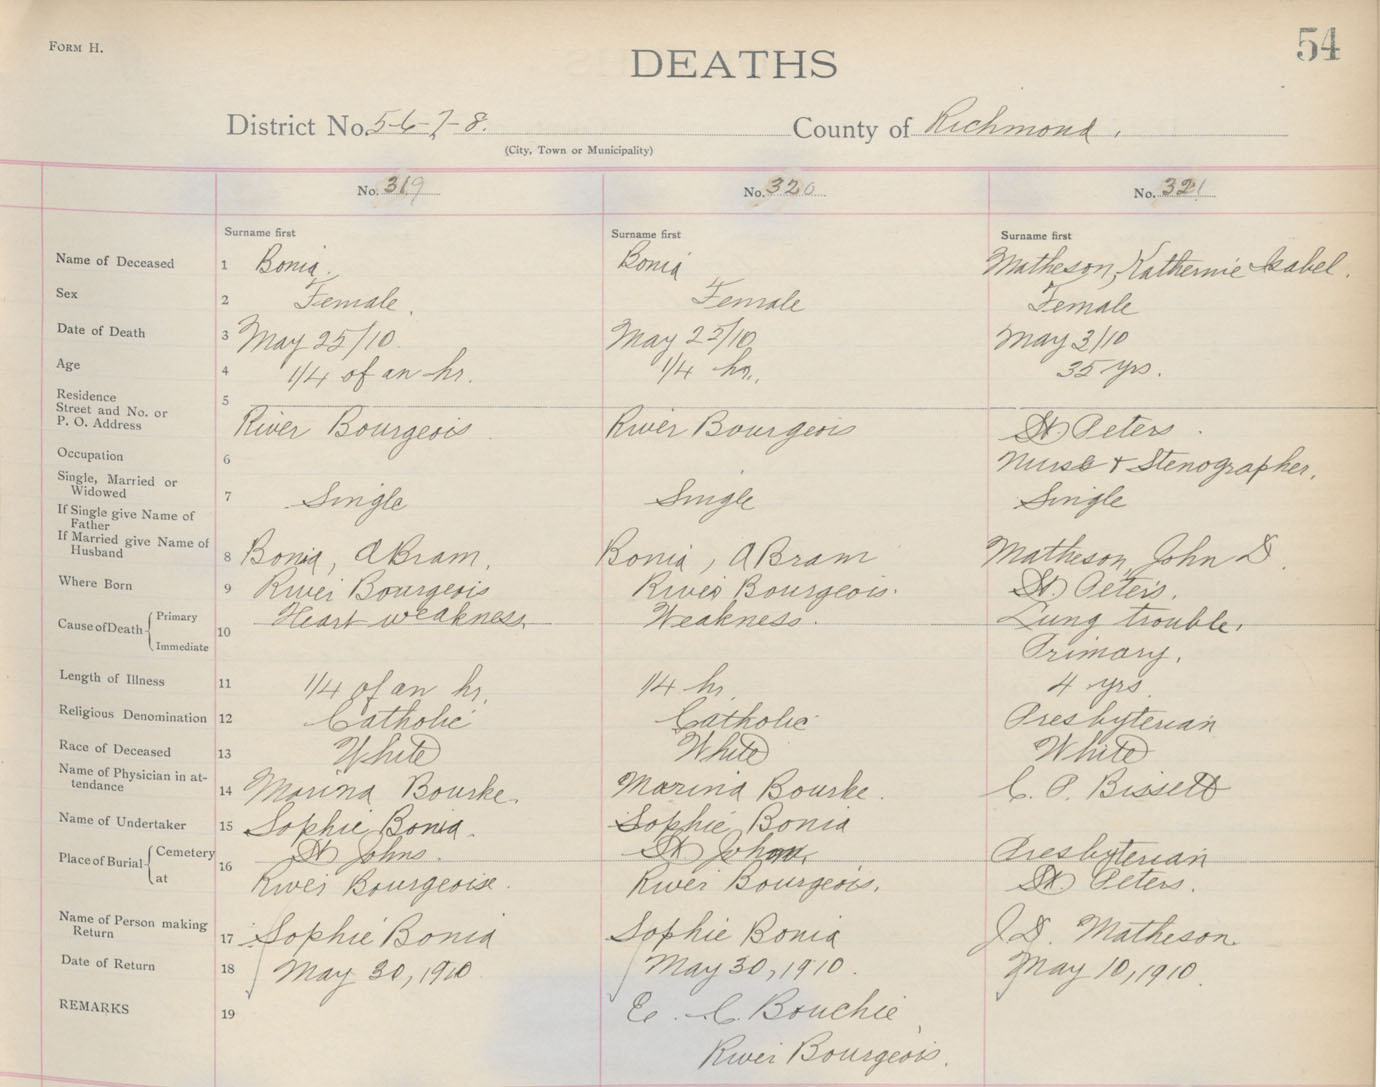 FORM H.
DEATHS
54
District No. 5-6-7-8. County of Richmond.
(City, Town or Municipality)
No. 319 No. 320 No. 321
Surname first Surname first Surname first
Name of Deceased 1 Bonia. Bonia Matheson, Katherine Isabel.
Sex 2 Female. Female Female
Date of Death 3 May 25/10. May 25/10 May 3/10
Age 4 1/4 of an hr. 1/4 hr. 35 yrs.
Residence 5
Street and No. or
P. O. Address River Bourgeois River Bourgeois St Peters
Occupation 6 Nurse + Stenographer.
Single, Married or
Widowed 7 Single Single Single
If Single give Name of
Father
If Married give Name of
Husband 8 Bonia, ABram. Bonia, ABram Matheson, John D.
Where Born 9 River Bourgeois River Bourgeois. St Peter's.
Cause of Death Primary 10 Heart weakness. Weakness. Lung trouble.
Immediate Primary.
Length of Illness 11 1/4 of an hr. 1/4 hr. 4 yrs.
Religious Denomination 12 Catholic Catholic Presbyterian
Race of Deceased 13 White White White
Name of Physician in at-
tendance 14 Marina Bourke. Marina Bourke. C. P. Bissett
Name of Undertaker 15 Sophie Bonia. Sophie Bonia
Place of Burial Cemetery 16 St Johns. St Presbyterian
at River Bourgeoise. River Bourgeois. St. Peters.
Name of Person making
Return 17 Sophie Bonia Sophie Bonia J.D. Matheson.
Date of Return 18 May 30, 1910 May 30, 1910. May 10, 1910.
REMARKS 19 C. Bouchie,
River Bourgeois.